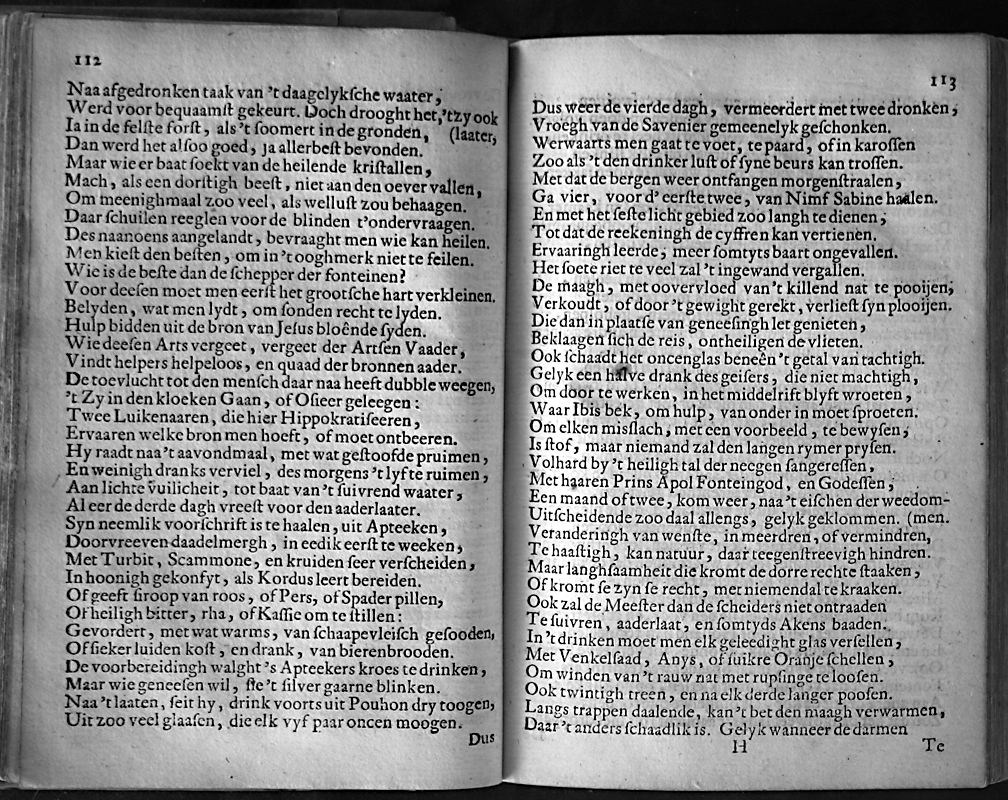 112
Naa afgedronken taak van 't daagelykſche waater,
Werd voor bequaamſt gekeurt. Doch drooght het, 'tzy ook
Ia in de felſte forſt, als 't ſoomert in de gronden, (laater,
Dan werd het alſoo goed, ja allerbeſt bevonden.
Maar wie er baat ſoekt van de heilende kriſtallen,
Mach, als een dorſtigh beeſt, niet aan den oever vallen,
Om meenighmaal zoo veel, als welluſt zou behaagen.
Daar ſchuilen reeglen voor de blinden t'ondervraagen.
Des naanoens aangelandt, bevraaght men wie kan heilen.
Men kieſt den beſten, om in 't ooghmerk niet te feilen.
Wie is de beſte dan de ſchepper der fonteinen?
Voor deeſen moet men eerſt het grootſche hart verkleinen.
Belyden, wat men lydt, om ſonden recht te lyden.
Hulp bidden uit de bron van Jeſus bloênde ſyden.
Wie deeſen Arts vergeet, vergeet der Artſen Vaader,
Vindt helpers helpeloos, en quaad der bronnen aader.
De toevlucht tot den menſch daar naa heeft dubble weegen,
't Zy in den kloeken Gaan, of Oſieer geleegen:
Twee Luikenaaren, die hier Hippokratiſeeren,
Ervaaren welke bron men hoeft, of moet ontbeeren.
Hy raadt naa 't aavondmaal, met wat geſtoofde pruimen,
En weinigh dranks verviel, des morgens 't lyf te ruimen,
Aan lichte vuilicheit, tot baat van 't ſuivrend waater,
Al eer de derde dagh vreeſt voor den aaderlaater.
Syn neemlik voorſchrift is te haalen, uit Apteeken,
Doorvreeven daadelmergh, in eedik eerſt te weeken,
Met Turbit, Scammone, en kruiden ſeer verſcheiden,
In hoonigh gekonfyt, als Kordus leert bereiden.
Of geeft ſiroop van roos, of Pers, of Spader pillen,
Of heiligh bitter, rha, of Kaſſie om te ſtillen:
Gevordert, met wat warms, van ſchaapevleiſch geſooden,
Of ſieker luiden koſt, en drank, van bierenbrooden.
De voorbereidingh walght 's Apteekers kroes te drinken,
Maar wie geneeſen wil, ſie 't ſilver gaarne blinken.
Naa 't laaten, ſeit hy, drink voorts uit Pouhon dry toogen,
Uit zoo veel glaaſen, die elk vyf paar oncen moogen.
Dus
113
Dus weer de vierde dagh, vermeerdert met twee dronken,
Vroegh van de Savenier gemeenelyk geſchonken.
Werwaarts men gaat te voet, te paard, of in karoſſen
Zoo als 't den drinker luſt of ſyne beurs kan troſſen.
Met dat de bergen weer ontfangen morgenſtraalen,
Ga vier, voor d' eerſte twee, van Nimf Sabine haalen.
En met het ſeſte licht gebied zoo langh te dienen,
Tot dat de reekeningh de cyffren kan vertienen.
Ervaaringh leerde, meer ſomtyts baart ongevallen.
Het ſoete riet te veel zal 't ingewand vergallen.
De maagh, met oovervloed van 't killend nat te pooijen,
Verkoudt, of door 't gewight gerekt, verlieſt ſyn plooijen.
Die dan in plaatſe van geneeſingh let genieten,
Beklaagen ſich de reis, ontheiligen de vlieten.
Ook ſchaadt het oncenglas beneên 't getal van tachtigh.
Gelyk een halve drank des geiſers, die niet machtigh,
Om door te werken, in het middelrift blyft wroeten,
Waar Ibis bek, om hulp, van onder in moet ſproeten.
Om elken miſſlach, met een voorbeeld, te bewyſen,
Is ſtof, maar niemand zal den langen rymer pryſen.
Volhard by 't heiligh tal der neegen ſangereſſen,
Met haaren Prins Apol Fonteingod, en Godeſſen,
Een maand of twee, kom weer, naa 't eiſchen der weedom-
Uitſcheidende zoo daal allengs, gelyk geklommen. (men.
Veranderingh van wenſte, in meerdren, of vermindren,
Te haaſtigh, kan natuur, daar teegenſtreevigh hindren.
Maar langhſaamheit die kromt de dorre rechte ſtaaken,
Of kromt ſe zyn ſe recht, met niemendal te kraaken.
Ook zal de Meeſter dan de ſcheiders niet ontraaden
Te ſuivren, aaderlaat, en ſomtyds Akens baaden.
In 't drinken moet men elk geleedight glas verſellen,
Met Venkelſaad, Anys, of ſuikre Oranje ſchellen,
Om winden van 't rauw nat met rupſinge te looſen.
Ook twintigh treen, en na elk derde langer pooſen.
Langs trappen daalende, kan 't bet den maagh verwarmen,
Daar 't anders ſchaadlik is. Gelyk wanneer de darmen
H
Te